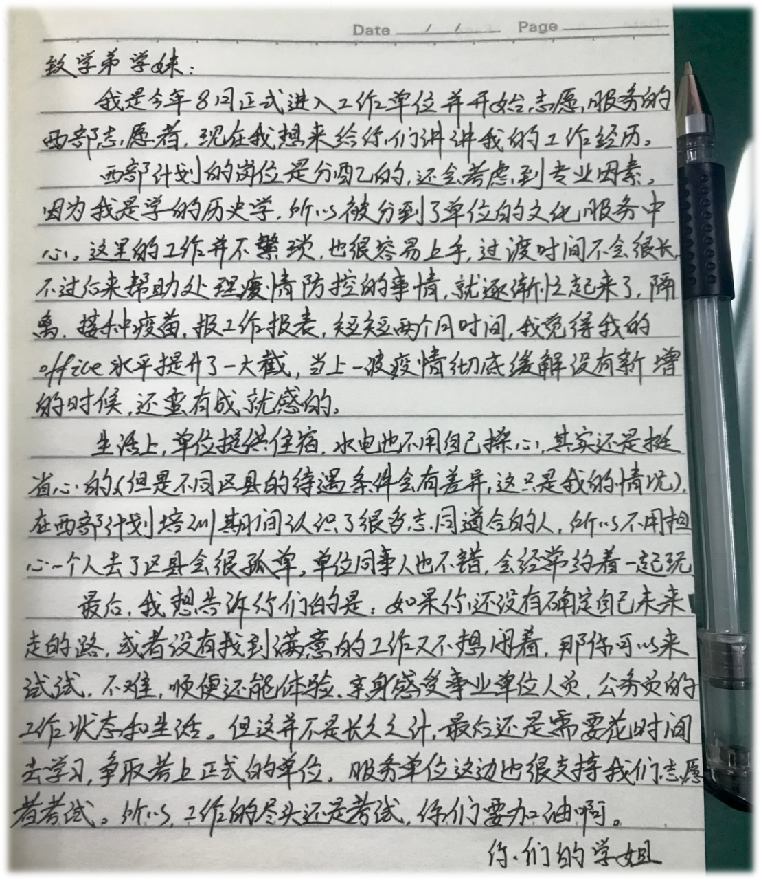 Date / / Page
致学弟学妹：
我是今年8月正式进入工作单位并开始志愿服务的
西部志愿者，现在我想来给你们讲讲我的工作经历。
西部计划的岗位是分配的，还会考虑到专业因素。
因为我是学的历史学，所以被分到了单位的文化服务中
心。这里的工作并不繁琐，也很容易上手，过渡时间不会很长
不过后来帮助处理疫情防控的事情，就逐渐忙起来了，隔
离、接种疫苗、报工作报表，短短两个月时间，我觉得我的
office水平提升了一大截，当上一波疫情彻底缓解没有新增
的时候，还蛮有成就感的。
生活上，单位提供住宿，水电也不用自己操心，其实还是挺
省心的（但是不同区县的待遇条件会有差异，这只是我的情况），
在西部计划培训期间认识了很多志同道合的人，所以不用担
心一个人去了区县会很孤单，单位同事人也不错，会经常约着一起玩
最后，我想告诉你们的是：如果你还没有确定自己未来
走的路，或者没有找到满意的工作又不想闲着，那你可以来
试试，不难，顺便还能体验、亲身感受事业单位人员、公务员的
工作状态和生活。但这并不是长久之计，最后还是需要花时间
去学习，争取考上正式的单位，服务单位这边也很支持我们志愿
者考试。所以，工作的尽头还是考试，你们要加油啊。
你们的学姐